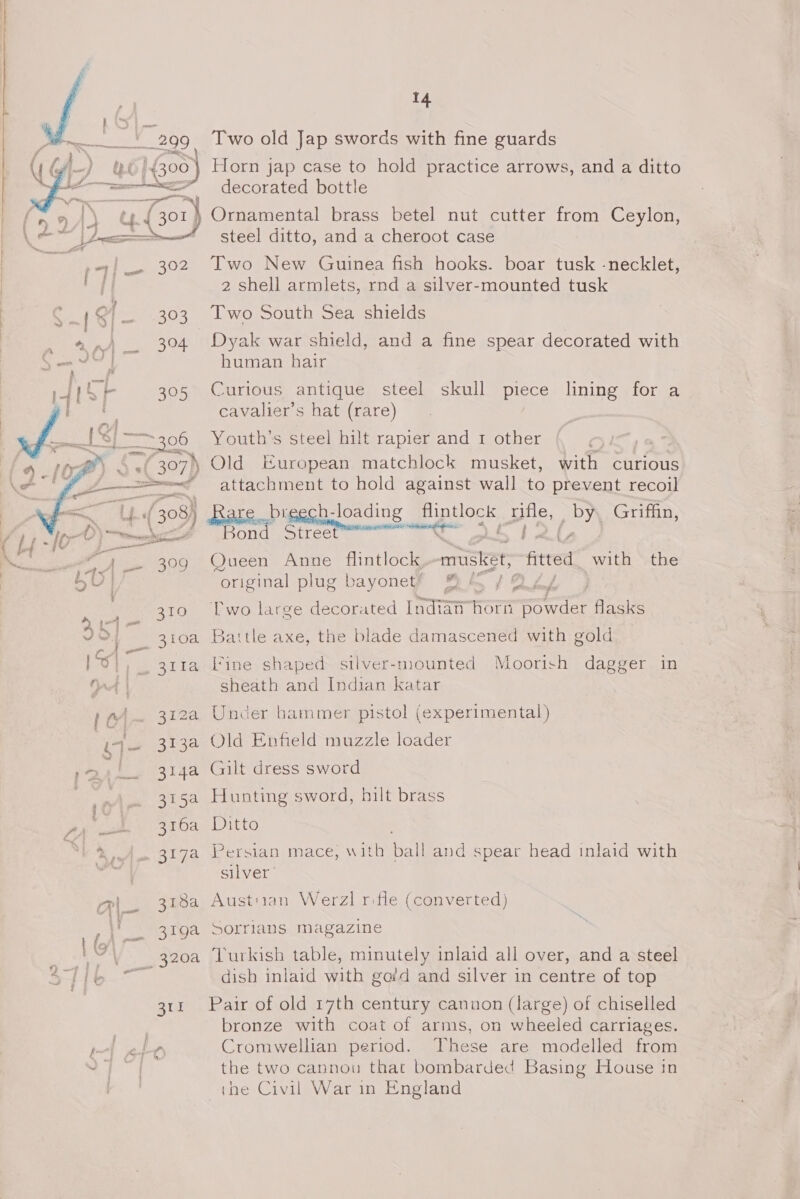 14
299 Two old Jap swords with fine guards
300 Horn jap case to hold practice arrows, and a ditto
decorated bottle
301 Ornamental brass betel nut cutter from Ceylon,
steel ditto, and a cheroot case
302 Two New Guinea fish hooks. boar tusk -necklet,
2 shell armlets, rnd a silver-mounted tusk
303 Two South Sea shields
304 Dyak war shield, and a fine spear decorated with
human hair
305 Curious antique steel skull piece lining for a
cavalier's hat (rare)
306 Youth's steel hilt rapier and 1 other
307 Old European matchlock musket, with curious
attachment to hold against wall to prevent recoil
308 Rare breech-loading flintlock rifle, by Griffin,
Bond Street
309 Queen Anne flintlock musket, fitted with the
original plug bayonet
310 Two large decorated Indian horn powder flasks
310a Battle axe, the blade damascened with gold
311a Fine shaped silver-mounted Moorish dagger in
sheath and Indian katar
312a Under hammer pistol (experimental)
313a Old Enfield muzzle loader
314a Gilt dress sword
315a Hunting sword, hilt brass
316a Ditto
317a Persian mace, with ball and spear head inlaid with
silver
318a Austrian Werzl rifle (converted)
319a Sorrians magazine
320a Turkish table, minutely inlaid all over, and a steel
dish inlaid with gold and silver in centre of top
311 Pair of old 17th century cannon (large) of chiselled
bronze with coat of arms, on wheeled carriages.
Cromwellian period. These are modelled from
the two cannou that bombarded Basing House in
the Civil War in England